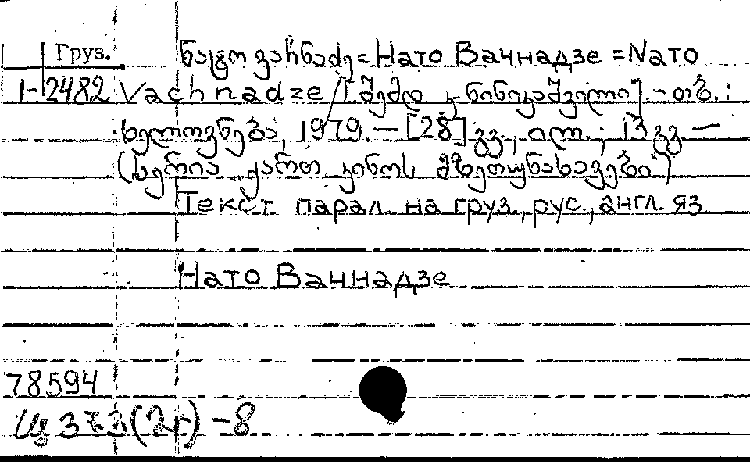 Груз.
ნატო ვაჩნაძე = Нато Вачнадзе = Nato
1-2482 Vachnadze / [შემდ. კ. ნინიკაშვილი]. - თბ. :
ხელოვნება, 1979. — [28] გვ., ილ. ; 13 გვ. —
(სერია ქართ. კინოს მსახიობები)
Текст парал. на груз., рус., англ. яз.
Нато Вачнадзе
78594
Щ 373(2г) - 8